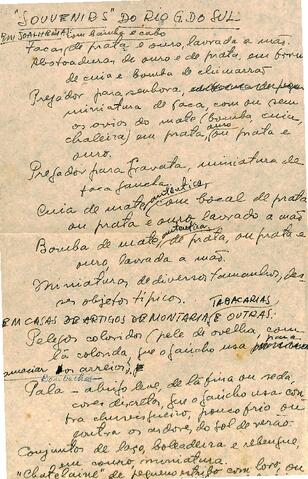 "SOUVENIRS" DO RIO G. DO SUL
EM JOALHERIA com bainha e cabo
Facas de prata e ouro, lavrada a mão.
Abotoaduras de ouro e de prata, em forma
de cuia e bomba de chimarrão
Pregador para senhora,
miniatura de faca, com ou sem
os avios do mate (bomba, cuia,
chaleira) em prata, ouro ou prata e
ouro.
Pregador para gravata, miniatura da
faca gaucha.
Cuia de mate, autêntica, com bocal de prata
ou prata e ouro lavrado a mão
Bomba de mate, autentica, de prata, ou prata e
ouro lavrada a mão.
Miniaturas de diversos tamanhos, des-
ses objetos típicos.
TABACARIAS.
EM CASAS DE ARTIGOS DE MONTARIA E OUTRAS.
Pelegos coloridos (pele de ovelha, com
lã colorida, que o gaúcho usa para
amaciar os arreios).
Pala - abrigo leve, de lã fina ou seda,
cores discretas, que o gaúcho usa con-
tra chuvisqueiro, pouco frio ou
contra os ardores do sol de verão.
Conjuntos de laço, boleadeira e rebenque,
em couro, miniatura.
"Chatelaine" de pequeno estribo com loro, ou